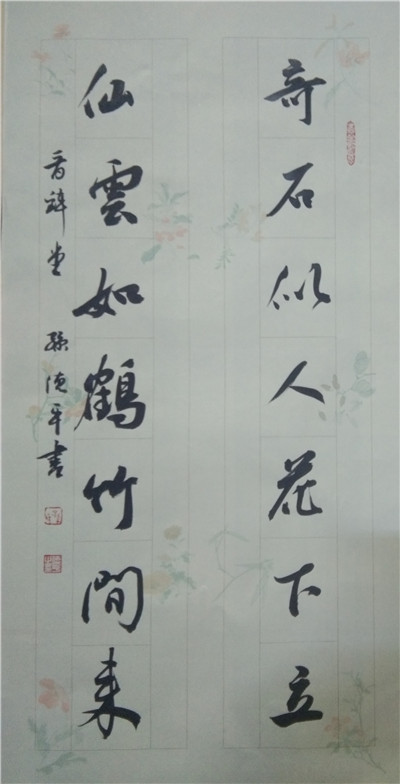 奇石似人花下立
仙雲如鶴竹間来
孫德平書